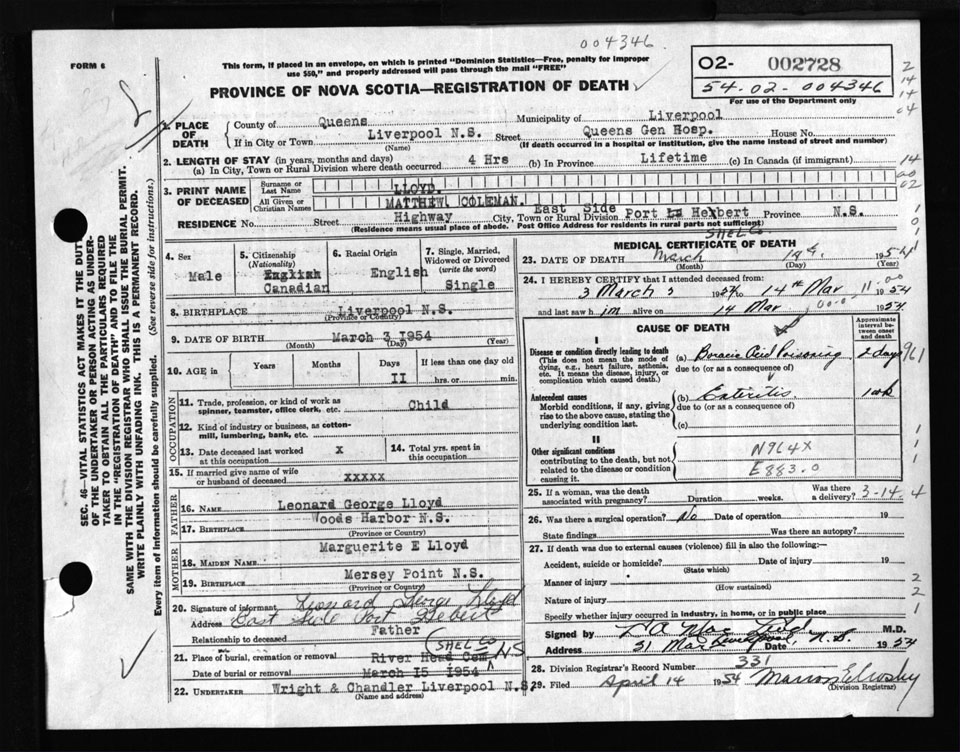 004346
FORM 6
This form, if placed in an envelope, on which is printed "Dominion Statistics—Free, penalty for improper
use $50," and properly addressed will pass through the mail "FREE"
02- 002728
54-02-004346
For use of the Department only
PROVINCE OF NOVA SCOTIA—REGISTRATION OF DEATH
1. PLACE OF DEATH
County of Queens Municipality of Liverpool
If in City or Town Liverpool N.S. Street Queens Gen Hosp. House No.
(Name) (If death occurred in a hospital or institution, give the name instead of street and number)
2. LENGTH OF STAY (in years, months and days)
(a) In City, Town or Rural Division where death occurred 4 Hrs (b) In Province Lifetime (c) In Canada (if immigrant)
3. PRINT NAME OF DECEASED
Surname or Last Name LLOYD.
All Given or Christian Names MATTHEW COLEMAN.
RESIDENCE No. Street Highway City, Town or Rural Division East Side Port La Hebert Province N.S.
(Residence means usual place of abode. Post Office Address for residents in rural parts not sufficient)
SHEL Co.
4. Sex Male
5. Citizenship (Nationality) English Canadian
6. Racial Origin English
7. Single, Married, Widowed or Divorced (write the word) Single
8. BIRTHPLACE Liverpool N.S.
(Province or Country)
9. DATE OF BIRTH March 3 1954
(Month) (Day) (Year)
10. AGE in Years Months Days II If less than one day old hrs. or min.
OCCUPATION
11. Trade, profession, or kind of work as spinner, teamster, office clerk, etc. Child
12. Kind of industry or business, as cotton-mill, lumbering, bank, etc.
13. Date deceased last worked at this occupation X
14. Total yrs. spent in this occupation
15. If married give name of wife or husband of deceased XXXXX
FATHER
16. NAME Leonard George Lloyd
17. BIRTHPLACE Woods Harbor N.S.
(Province or Country)
MOTHER
18. MAIDEN NAME Marguerite E Lloyd
19. BIRTHPLACE Mersey Point N.S.
(Province or Country)
20. Signature of informant Leonard George Lloyd
Address East Side Port Hebert
Relationship to deceased Father
21. Place of burial, cremation or removal River Head Cem SHEL Co N.S
Date of burial or removal March 15 1954
22. UNDERTAKER Wright & Chandler Liverpool N.S.
(Name and address)
MEDICAL CERTIFICATE OF DEATH
23. DATE OF DEATH March 14 1954
(Month) (Day) (Year)
24. I HEREBY CERTIFY that I attended deceased from:
3 March 1954 to 14th Mar 1954
and last saw him alive on 14 Mar 1954
CAUSE OF DEATH
Approximate interval between onset and death
I
Disease or condition directly leading to death
(This does not mean the mode of dying, e.g., heart failure, asthenia, etc. It means the disease, injury, or complication which caused death.)
(a) Boracic Acid Poisoning 2 days 961
due to (or as a consequence of)
Antecedent causes
Morbid conditions, if any, giving rise to the above cause, stating the underlying condition last.
(b) Enteritis 1 wk
due to (or as a consequence of)
(c)
II
Other significant conditions
contributing to the death, but not related to the disease or condition causing it.
N964X
E883.0
25. If a woman, was the death associated with pregnancy? Duration weeks. Was there a delivery? 3-14.4
26. Was there a surgical operation? No Date of operation 19
State findings Was there an autopsy?
27. If death was due to external causes (violence) fill in also the following:—
Accident, suicide or homicide? Date of injury 19
(State which)
Manner of injury
(How sustained)
Nature of injury
Specify whether injury occurred in industry, in home, or in public place
Signed by M.D.
Address Liverpool, N.S. Date 31 Mar 1954
28. Division Registrar's Record Number 331
29. Filed April 14 1954 Marion E Crosby
(Division Registrar)
SEC. 46—VITAL STATISTICS ACT MAKES IT THE DUTY
OF THE UNDERTAKER OR PERSON ACTING AS UNDER-
TAKER TO OBTAIN ALL THE PARTICULARS REQUIRED
IN THE "REGISTRATION OF DEATH" AND TO FILE THE
SAME WITH THE DIVISION REGISTRAR WHO SHALL ISSUE THE BURIAL PERMIT.
WRITE PLAINLY WITH UNFADING INK. THIS IS A PERMANENT RECORD.
Every item of Information should be carefully supplied. (See reverse side for instructions.)